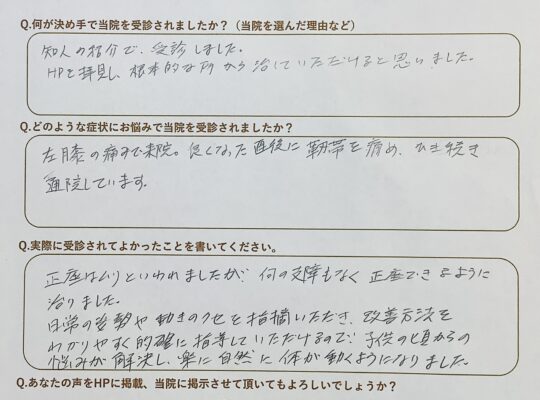 Q.何が決め手で当院を受診されましたか？（当院を選んだ理由など）
知人の紹介で、受診しました。
HPを拝見し、根本的な所から治していただけると思いました。
Q.どのような症状にお悩みで当院を受診されましたか？
左膝の痛みで来院。良くなった直後に靭帯を痛め、ひき続き
通院しています。
Q.実際に受診されてよかったことを書いてください。
正座はムリといわれましたが、何の支障もなく正座できるように
治りました。
日常の姿勢や動きのクセを指摘いただき、改善方法を
わかりやすく的確に指導していただけるので、子供の頃からの
悩みが解決し、楽に自然に体が動くようになりました。
Q.あなたの声をHPに掲載、当院に掲示させて頂いてもよろしいでしょうか？